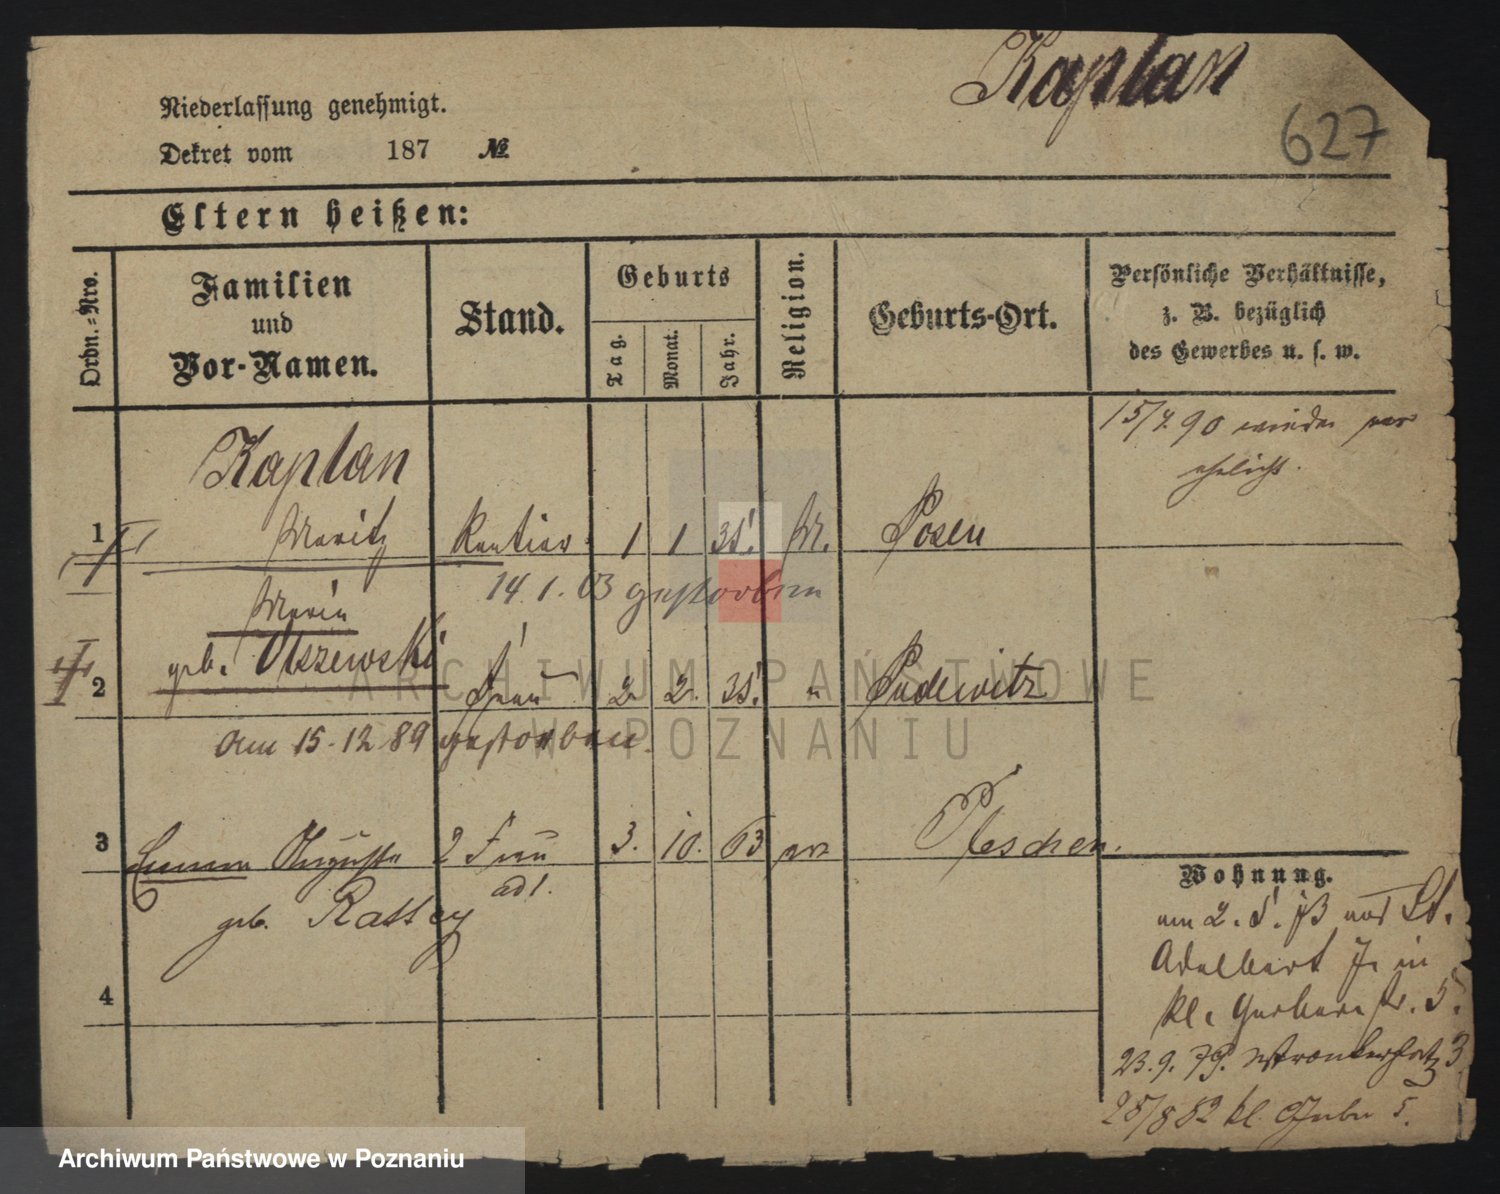 Kaplan
627
Niederlassung genehmigt.
Dekret vom 187 №
Eltern heißen:
Ordn.-Nro.
Familien
und
Vor-Namen.
Stand.
Geburts
Tag.
Monat.
Jahr.
Religion.
Geburts-Ort.
Persönliche Verhältnisse,
z. B. bezüglich
des Gewerbes u. s. w.
15/7. 90 wieder ver
ehelicht.
Kaplan
1 Moritz Rentier 1 1 35. M. Posen
14. 1. 03 gestorben
Marie
2 geb. Olszewski Frau 2. 2. 35. " Pudewitz
am 15. 12 89 gestorben.
3 Emma Auguste 2 Frau 3. 10. 63 Pleschen.
geb. Rattey
4
Wohnung.
am 2. 5. St.
Adalbert 7. in
kl. Gerberstr. 5.
23. 9. 79. Wronkerplatz 3
25/8 82 kl. Gerber 5.
ARCHIWUM PAŃSTWOWE
W POZNANIU
Archiwum Państwowe w Poznaniu